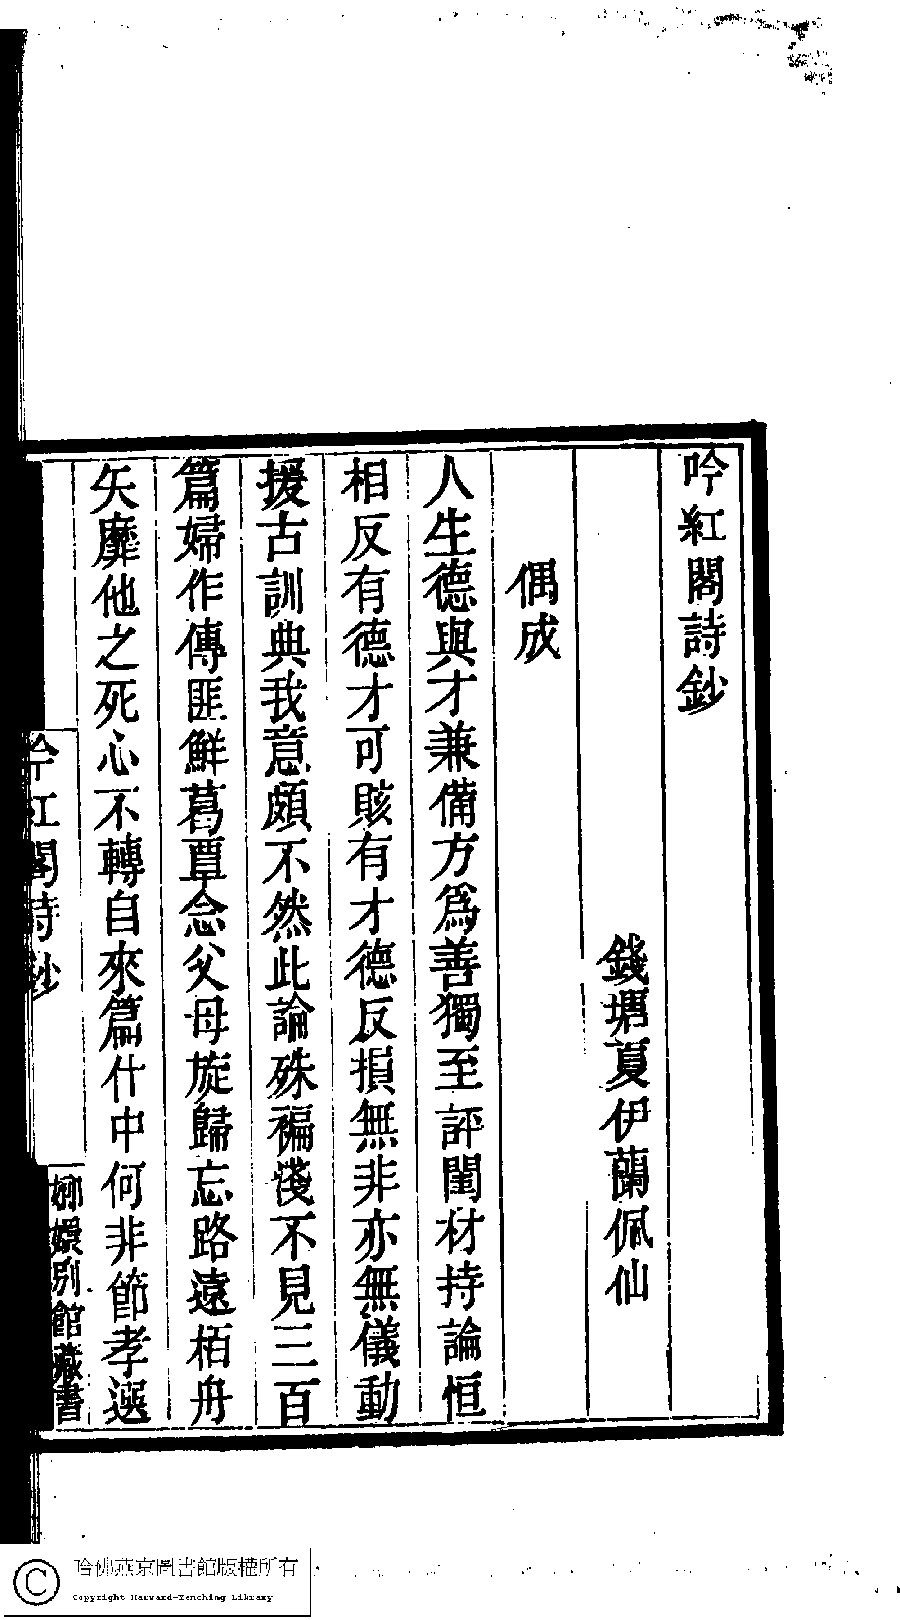 吟紅閣詩鈔
錢塘夏伊蘭佩仙
偶成
人生德與才兼備方爲善獨至評閨材持論恒
相反有德才可賅有才德反損無非亦無儀動
援古訓典我意頗不然此論殊褊淺不見三百
篇婦作傳匪鮮葛覃念父母旋歸忘路遠栢舟
矢靡他之死心不轉自來篇什中何非節孝選
吟紅閣詩鈔
嫏嬛別館藏書
哈佛燕京圖書館版權所有
Copyright Harvard-Yenching Library